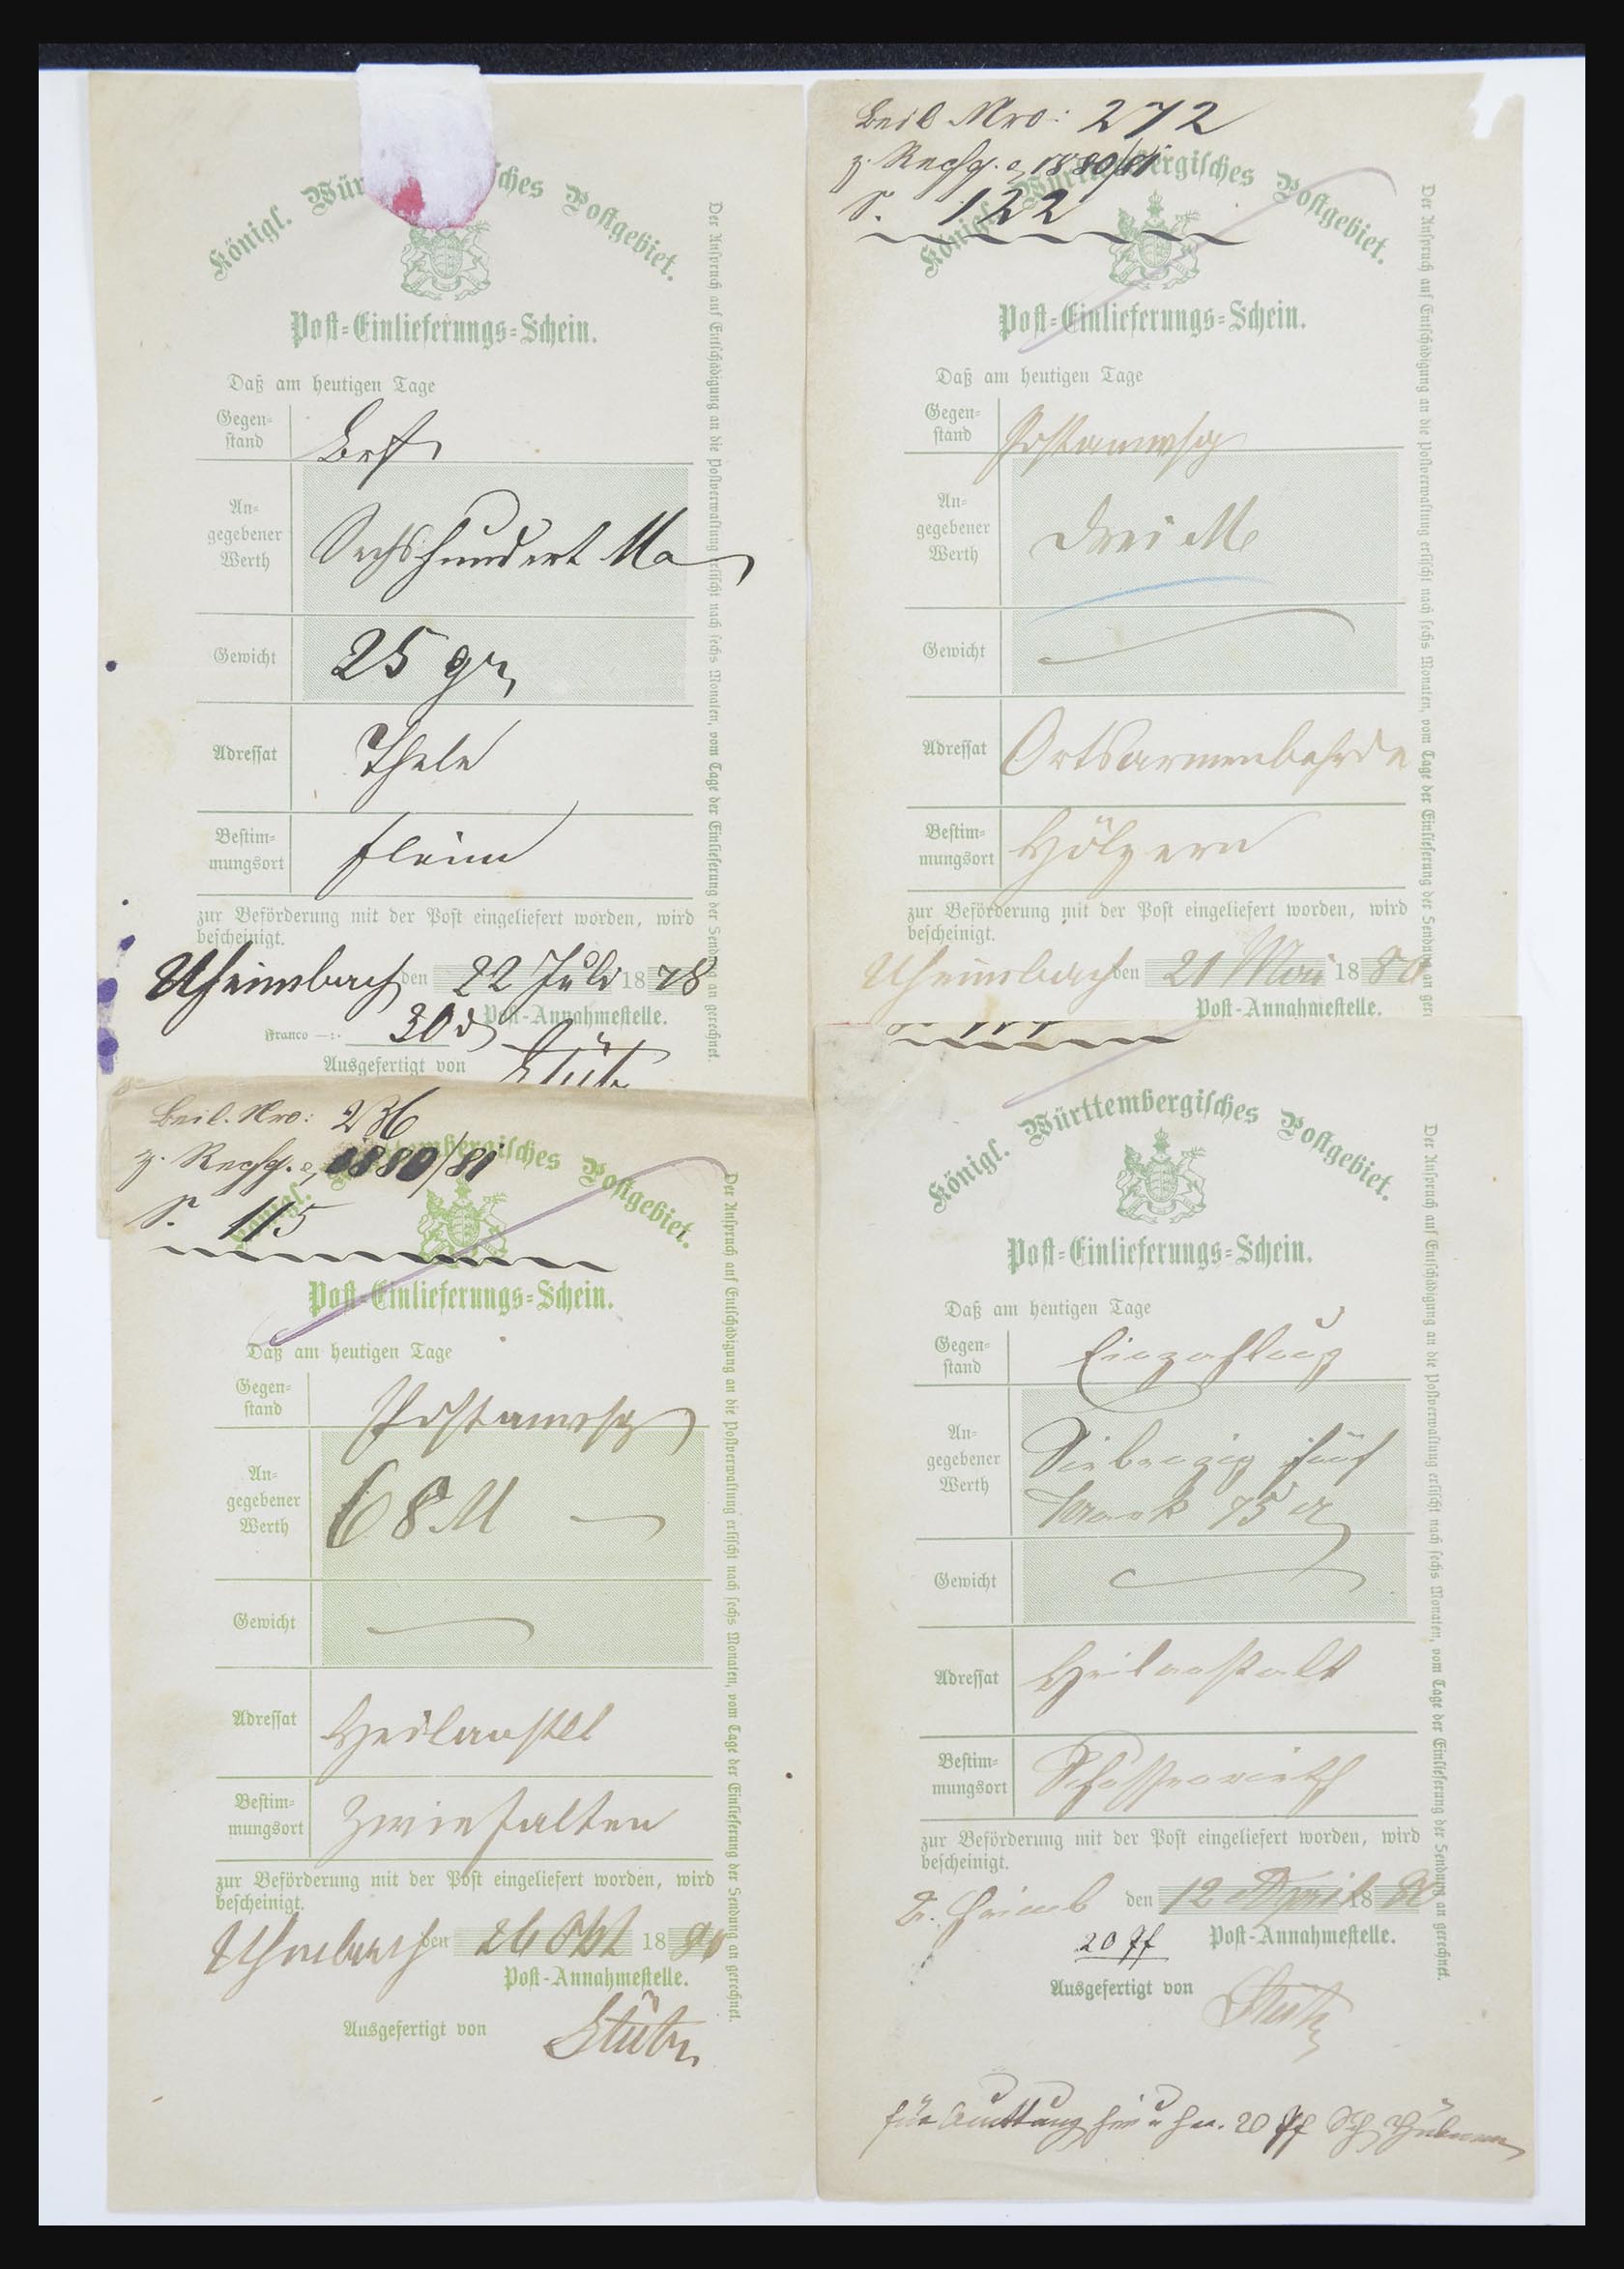 Königl. Würt sches Postgebiet.
Post-Einlieferungs-Schein.
Daß am heutigen Tage
Gegen-
stand
Brf
An-
gegebener
Werth
Sechshundert M
Gewicht
25 gr
Adressat
Bestim-
mungsort
Flein
zur Beförderung mit der Post eingeliefert worden, wird
bescheinigt.
Uheimbach den 22 Juli 1878
Post-Annahmestelle.
Franco —:- 30 ₰
Ausgefertigt von Stütz
Der Anspruch auf Entschädigung an die Postverwaltung erlischt nach sechs Monaten, vom Tage der Einlieferung der Sendung an gerechnet.
Beil Nro: 272
z. Rechg. 1880/81
S. 122
Königl. Württembergisches Postgebiet.
Post-Einlieferungs-Schein.
Daß am heutigen Tage
Gegen-
stand
Postanwsg
An-
gegebener
Werth
Drei M
Gewicht
Adressat
Ortsarmenbehörde
Bestim-
mungsort
Hölzern
zur Beförderung mit der Post eingeliefert worden, wird
bescheinigt.
Uheimbach den 21 Mai 1880
Post-Annahmestelle.
Der Anspruch auf Entschädigung an die Postverwaltung erlischt nach sechs Monaten, vom Tage der Einlieferung der Sendung an ger
Beil. Nro: 236
z. Rechg. 1880/81
S. 115
Königl. Württembergisches Postgebiet.
Post-Einlieferungs-Schein.
Daß am heutigen Tage
Gegen-
stand
Postanwsg
An-
gegebener
Werth
68 M —
Gewicht
Adressat
Heilanstlt
Bestim-
mungsort
Zwiefalten
zur Beförderung mit der Post eingeliefert worden, wird
bescheinigt.
Uheimbach den 26 Okt 1880
Post-Annahmestelle.
Ausgefertigt von Stütz
Der Anspruch auf Entschädigung an die Postverwaltung erlischt nach sechs Monaten, vom Tage der Einlieferung der Sendung an gerechnet.
Königl. Württembergisches Postgebiet.
Post-Einlieferungs-Schein.
Daß am heutigen Tage
Gegen-
stand
Einzahlung
An-
gegebener
Werth
Siebenzig fünf
Mark 75 ₰
Gewicht
Adressat
Heilanstalt
Bestim-
mungsort
Schussenrieth
zur Beförderung mit der Post eingeliefert worden, wird
bescheinigt.
U. Heimb den 12 April 1880
20 Pf Post-Annahmestelle.
Ausgefertigt von Stütz
für Quittung 20 Pf
Der Anspruch auf Entschädigung an die Postverwaltung erlischt nach sechs Monaten, vom Tage der Einlieferung der Sendung an gerechnet.